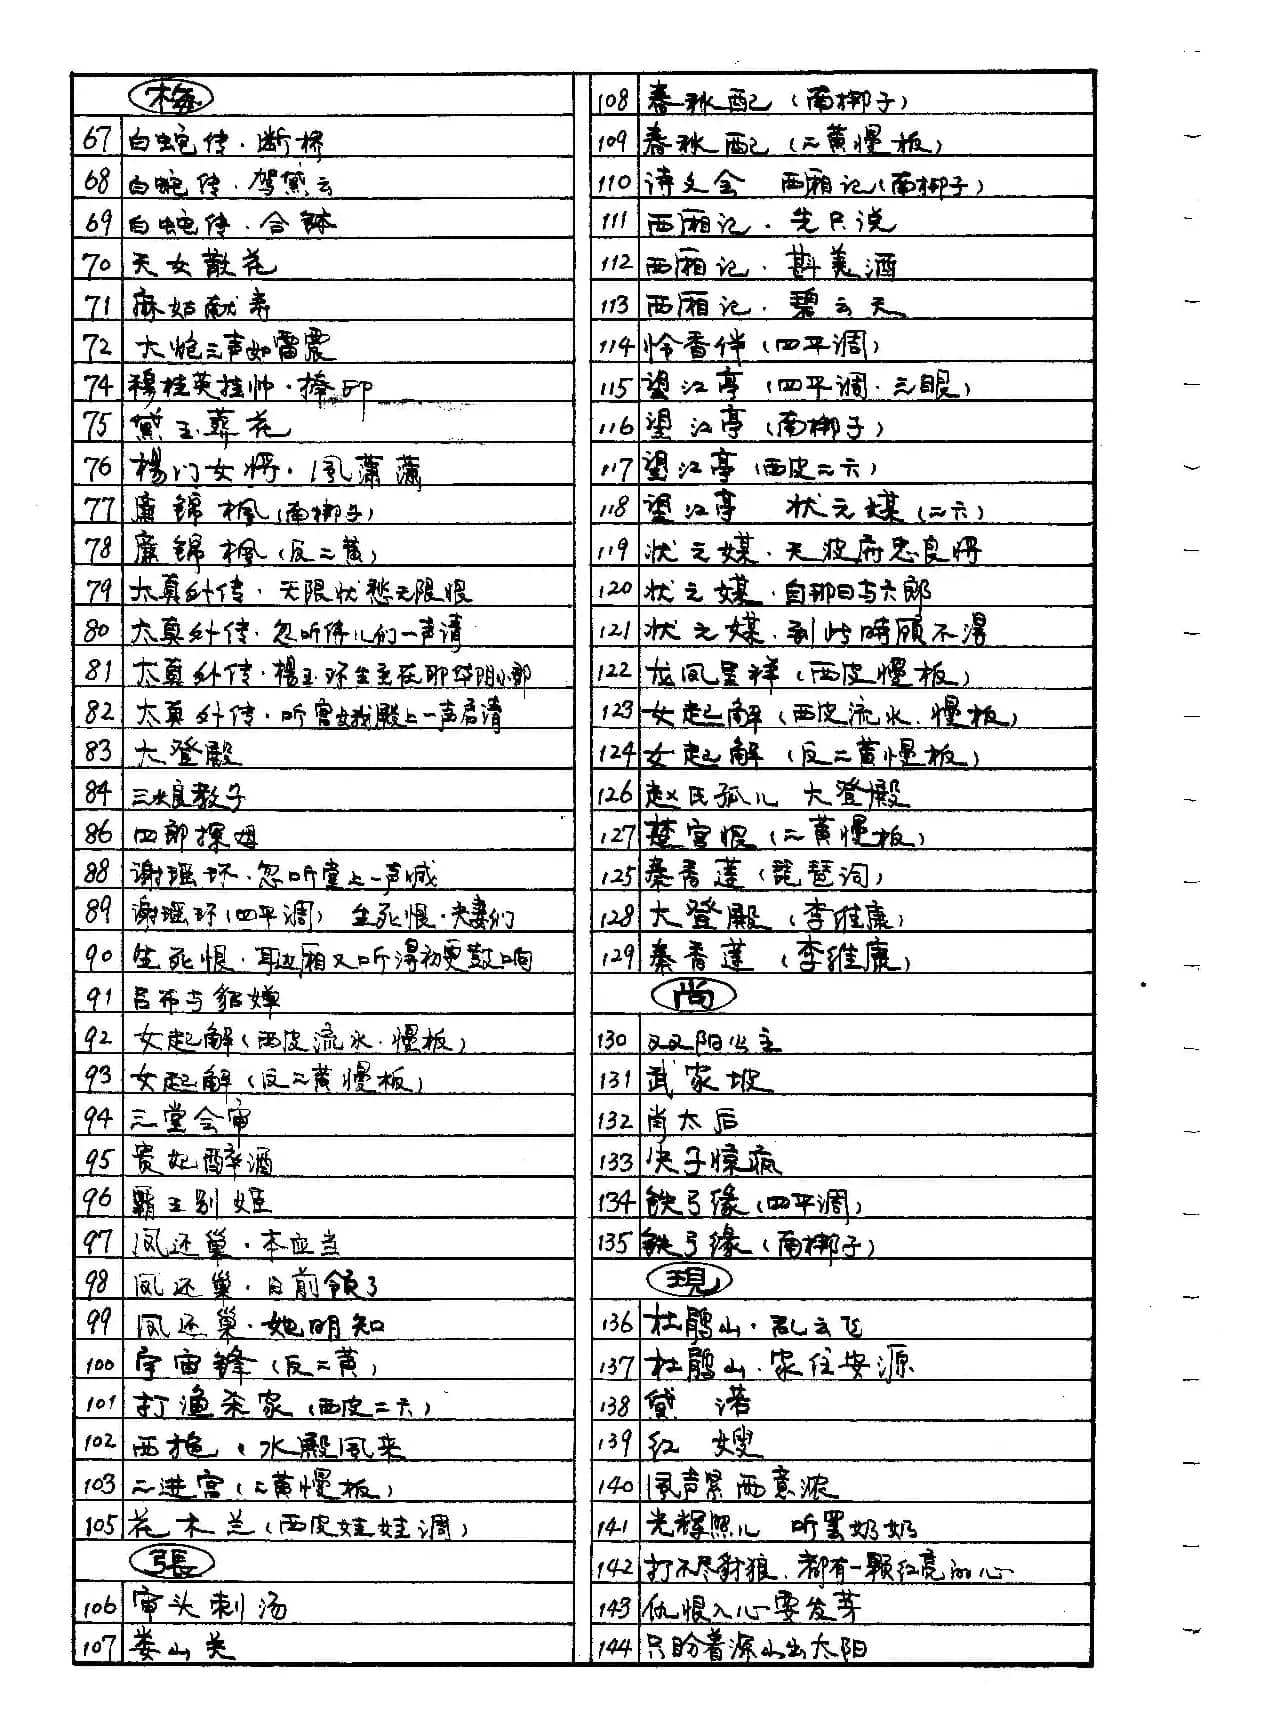 梅
67 白蛇传·断桥
68 白蛇传·驾黛云
69 白蛇传·合钵
70 天女散花
71 麻姑献寿
72 大炮三声如雷震
74 穆桂英挂帅·捧印
75 黛玉葬花
76 杨门女将·风潇潇
77 廉锦枫(南梆子)
78 廉锦枫(反二黄)
79 太真外传·无限状愁无限恨
80 太真外传·忽听侍儿们一声请
81 太真外传·楊玉环生在那华阴小郡
82 太真外传·听宫娥殿上一声启请
83 大登殿
84 三娘教子
86 四郎探母
88 谢瑶环·忽听堂上一声喊
89 谢瑶环(四平调) 生死恨·夫妻们
90 生死恨·耳边厢又听得初更鼓响
91 吕布与貂婵
92 女起解(西皮流水·慢板)
93 女起解(反二黄慢板)
94 三堂会审
95 贵妃醉酒
96 霸王别姬
97 凤还巢·本应当
98 凤还巢·日前领了
99 凤还巢·她明知
100 宇宙锋(反二黄)
101 打渔杀家(西皮二六)
102 西施·水殿风来
103 二进宫(二黄慢板)
105 花木兰(西皮娃娃调)
張
106 审头刺汤
107 娄山关
108 春秋配(南梆子)
109 春秋配(二黄慢板)
110 诗文会 西厢记(南梆子)
111 西厢记·先只说
112 西厢记·斟美酒
113 西厢记·碧云天
114 怜香伴(四平调)
115 望江亭(四平调·三眼)
116 望江亭(南梆子)
117 望江亭(西皮二六)
118 望江亭 状元媒(二六)
119 状元媒·天波府忠良将
120 状元媒·自那日与六郎
121 状元媒·到此時顾不得
122 龙凤呈祥(西皮慢板)
123 女起解(西皮流水·慢板)
124 女起解(反二黄慢板)
126 赵氏孤儿 大登殿
127 楚宫恨(二黄慢板)
125 秦香莲(琵琶词)
128 大登殿(李维康)
129 秦香莲(李维康)
尚
130 双阳公主
131 武家坡
132 肖太后
133 失子惊疯
134 铁弓缘(四平调)
135 铁弓缘(南梆子)
現
136 杜鹃山·乱云飞
137 杜鹃山·家住安源
138 黛诺
139 红嫂
140 风声紧雨意浓
141 光辉照儿 听罢奶奶
142 打不尽豺狼、都有一颗红亮的心
143 仇恨入心要发芽
144 只盼着深山出太阳